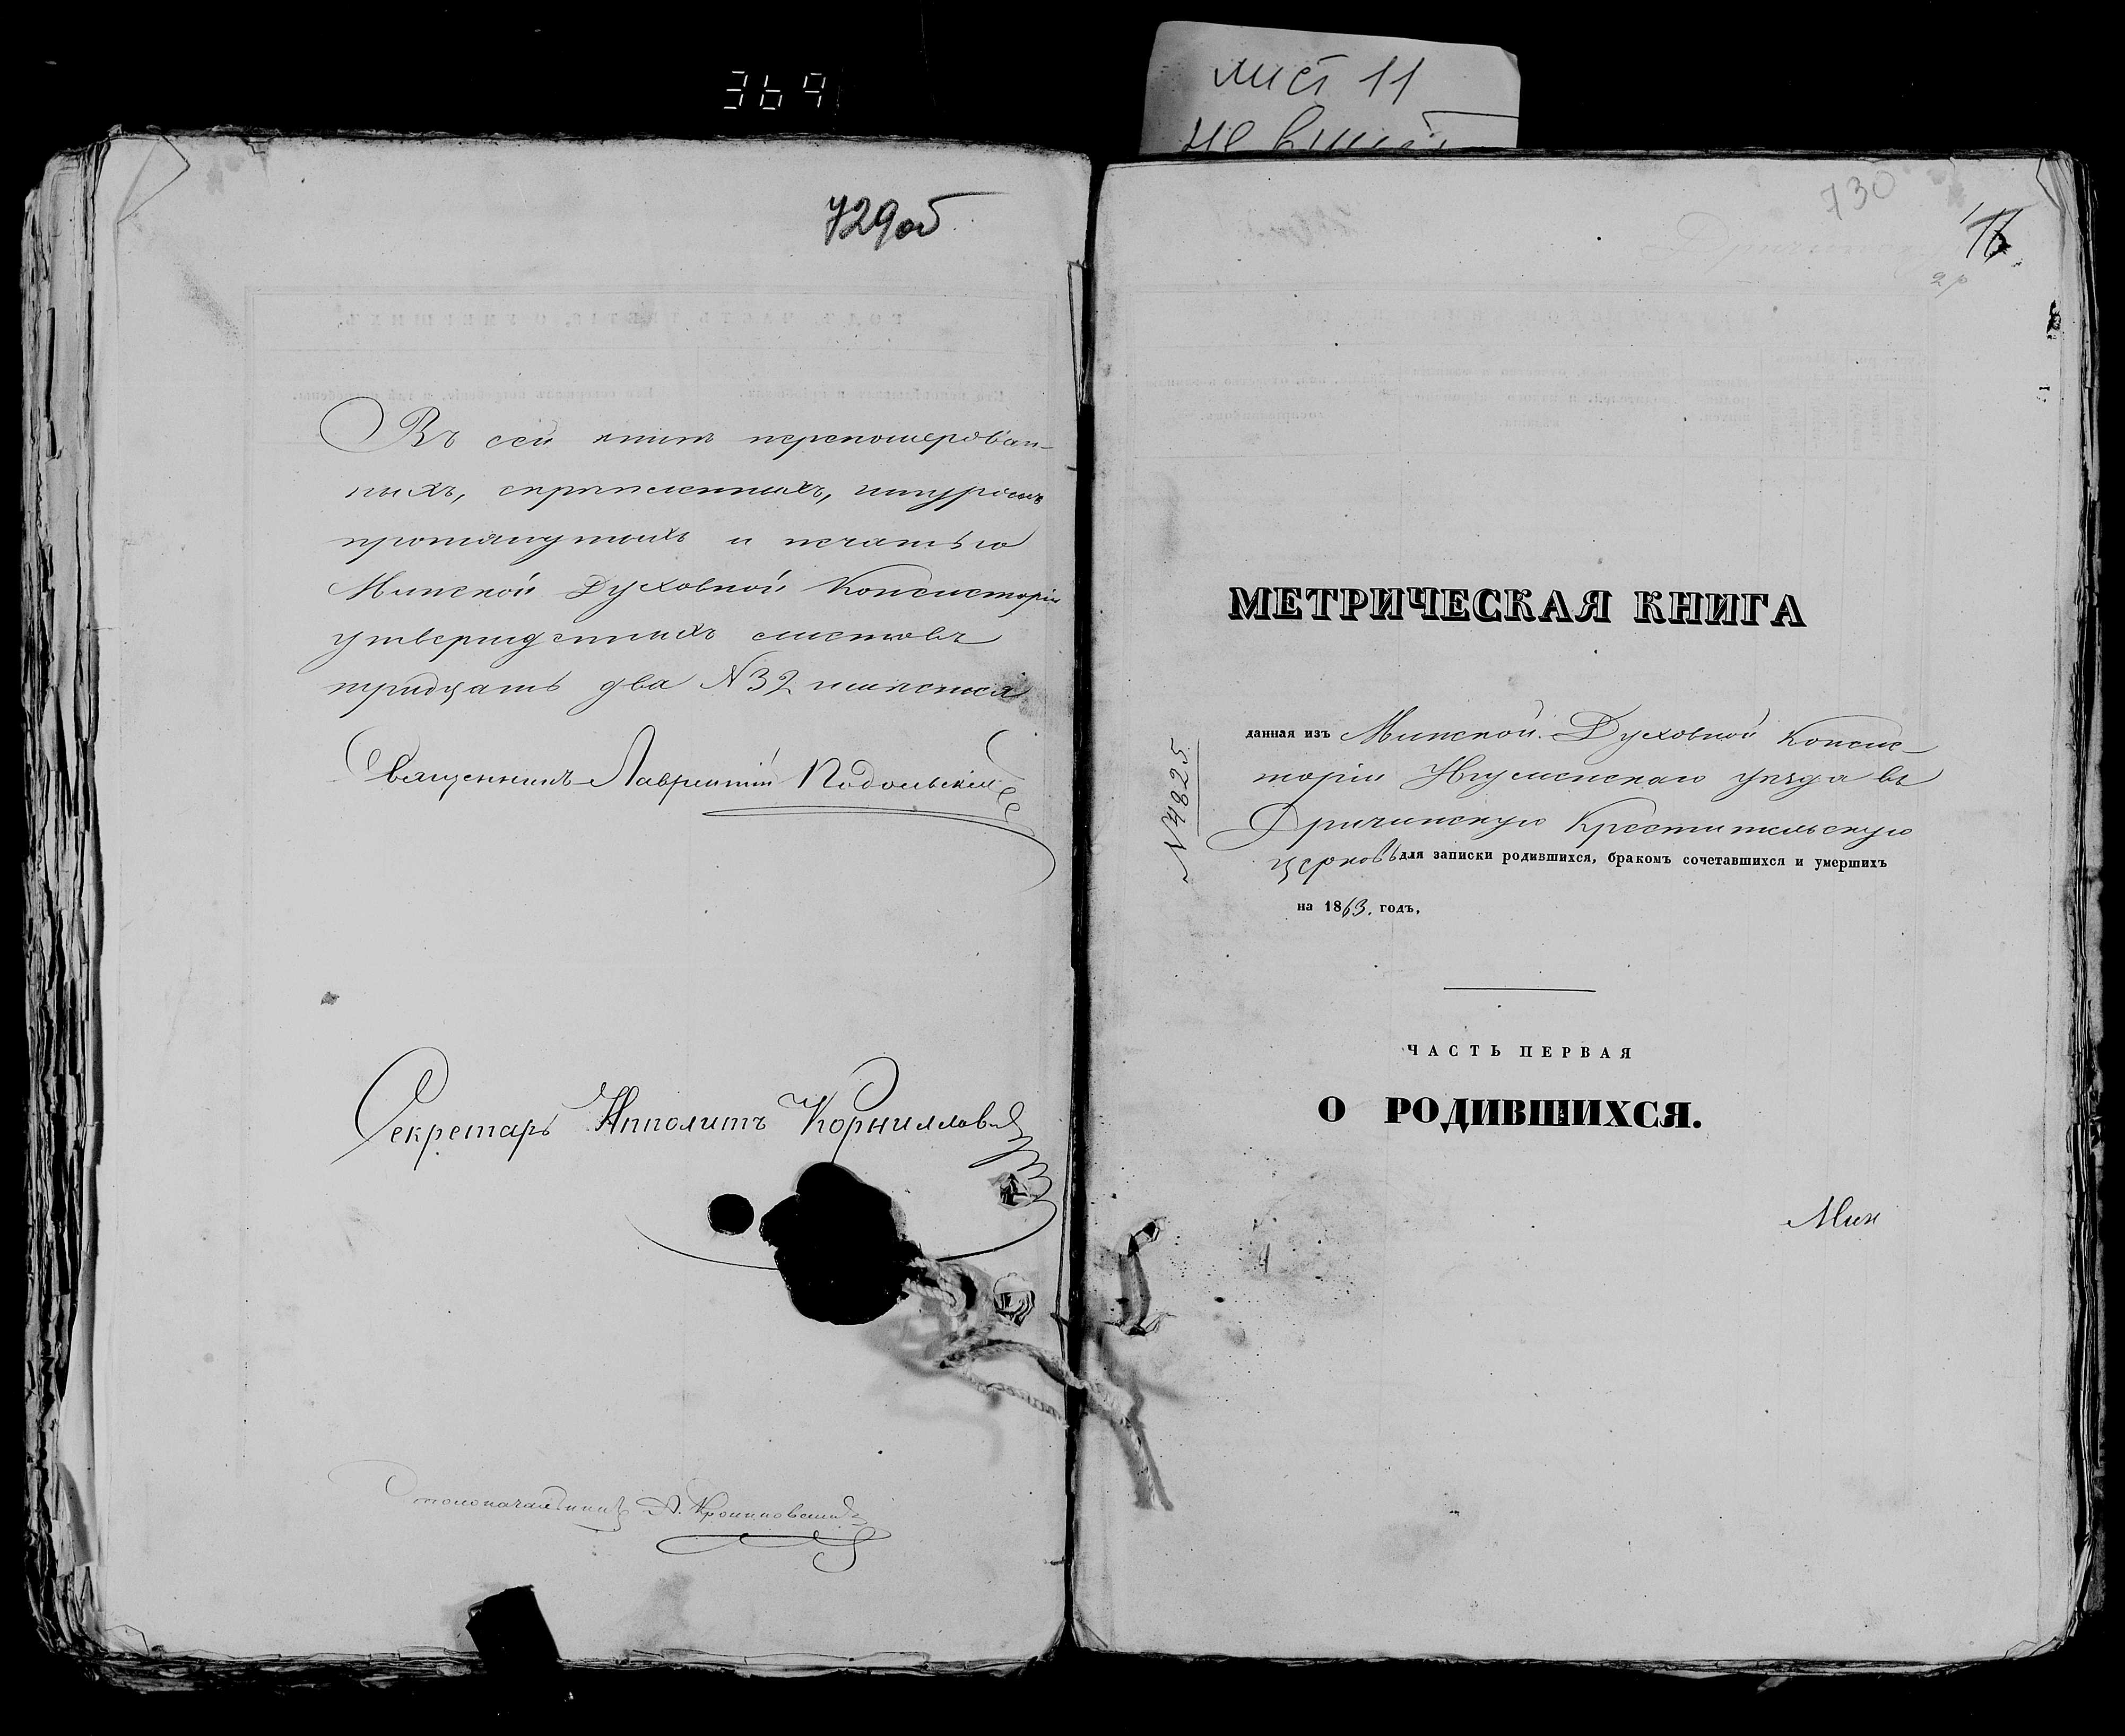 369
лист 11
729об.
Въ сей книгѣ переномерован-
ныхъ, скрѣпленныхъ, шнуромъ
протянутыхъ и печатью
Минской Духовной Консисторіи
утвержденныхъ листовъ
тридцать два N 32 имѣется
Священникъ Лаврентій Подольскій
Секретарь Ипполитъ Корниловичъ
Столоначальникъ А.
730
МЕТРИЧЕСКАЯ КНИГА
N 4825
данная изъ Минской Духовной Консис-
торіи Игуменскаго уѣзда въ
Дричинскую Крестительскую
церковь для записки родившихся, бракомъ сочетавшихся и умершихъ
на 1863. годъ,
ЧАСТЬ ПЕРВАЯ
О РОДИВШИХСЯ.
Мин